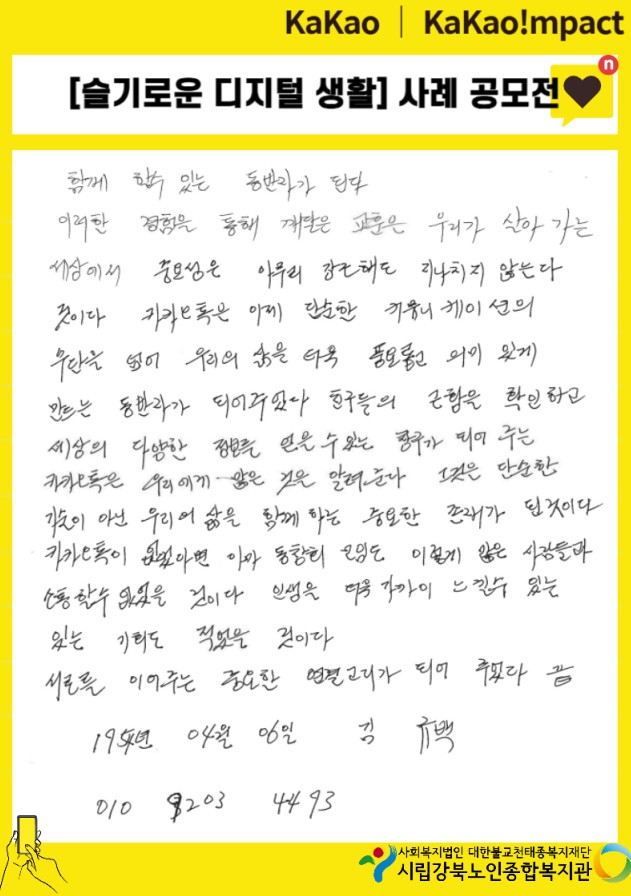 KaKao | KaKao!mpact
[슬기로운 디지털 생활] 사례 공모전
n
함께 할수 있는 동반라가 된다
이러한 경험을 통해 깨달은 교훈은 우리가 살아 가는
세상에서 중요성은 아무리 강조해도 지나치지 않는다
것이다 카카오톡은 이제 단순한 커뮤니케이션의
수단을 넘어 우리의 삶을 더욱 풍요롭고 의미 있게
만드는 동반라가 되어주었다 친구들의 근황을 확인하고
세상의 다양한 정보를 얻을 수 있는 창구가 되어 주는
카카오톡은 우리에게 많은 것을 알려준다 그것은 단순한
기술이 아닌 우리의 삶을 함께 하는 중요한 존재가 된것이다
카카오톡이 없었다면 아마 동창회 모임도 이렇게 많은 사람들과
소통할수 없었을 것이다 인생을 더욱 가까이 느낄수 있는
있는 기회도 적었을 것이다
서로를 이어주는 중요한 연결고리가 되어 주었다 끝
04월 06일 김 규백
010 4493
사회복지법인 대한불교천태종복지재단
시립강북노인종합복지관